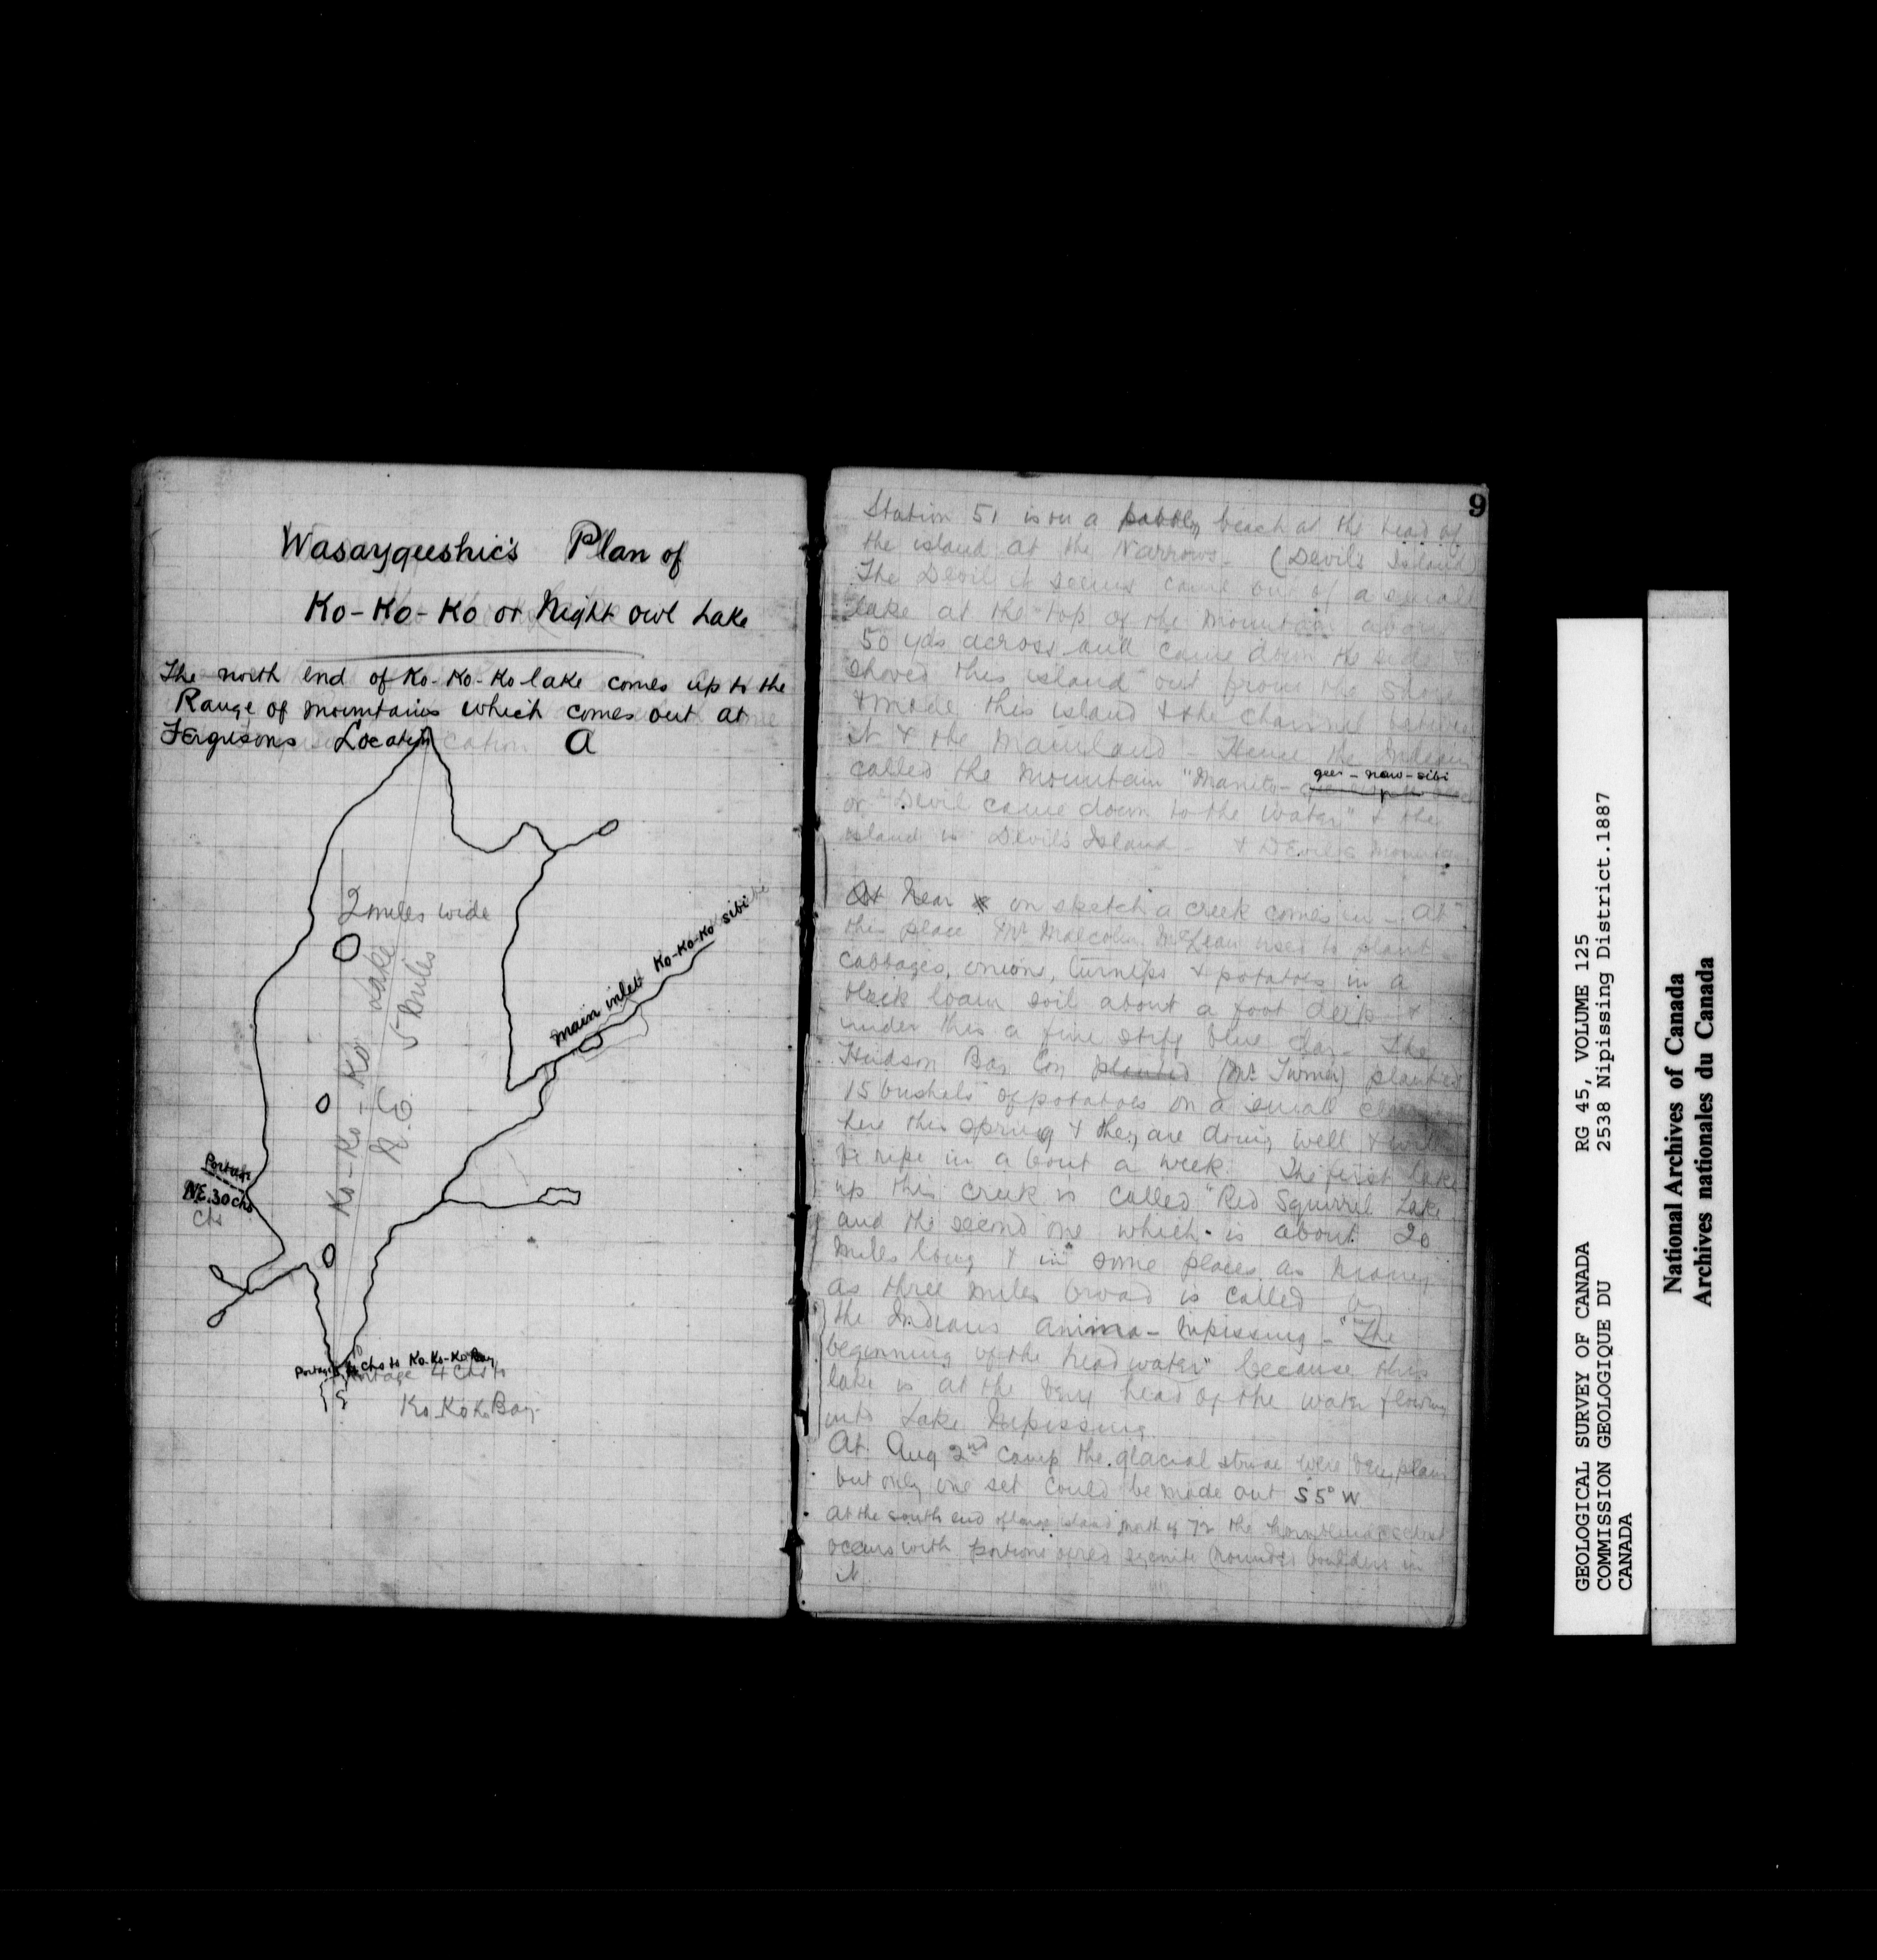 Wasaygueshic's Plan of
Ko-Ko-Ko or Night owl Lake
The north end of Ko-Ko-Ko lake comes up to the
Range of mountains which comes out at
Fergusons Location A
2 miles wide
Ko-Ko-Ko Lake
N.E. 5 miles
main inlet Ko-Ko-Ko sibi
Portage
N.E. 30 chs
chs
Portage chs to Ko-Ko-Ko Bay
Portage 4 chs to
Ko-Ko Ko Bay
9
Station 51 is on a pebbly beach at the head of
the island at the Narrows - (Devil's Island)
The Devil it seems came out of a small
lake at the top of the mountain about
50 yds across and came down the side &
shoved this island out from the shore
& made this island & the channel between
it & the mainland - Hence the Indians
called the mountain "Manito- gee-naw-sibi
or "Devil came down to the water" & the
island is Devils Island - & Devils mountain
At near x on sketch a creek comes in - At
this place Mr Malcolm McLean used to plant
cabbages, onions, turnips & potatoes in a
black loam soil about a foot deep &
under this a fine stiff blue clay - The
Hudson Bay Con planted (Mr Turner) planted
15 bushels of potatoes on a small
here this spring & they are doing well & will
be ripe in about a week. The first lake
up this creek is called "Red Squirrel Lake
and the second one which is about 20
miles long & in some places as many
as three miles broad is called by
the Indians Anima-nipissing - "The
beginning of the head water" because this
lake is at the very head of the water flowing
into Lake Nipissing.
At Aug 2nd camp the glacial striae were very plain
but only one set could be made out S 5° W
At the south end of large island north of 72 the hornblende schist
occurs with portions of red syenite (rounded boulders in
it.
GEOLOGICAL SURVEY OF CANADA RG 45, VOLUME 125
COMMISSION GEOLOGIQUE DU 2538 Nipissing District.1887
CANADA
National Archives of Canada
Archives nationales du Canada